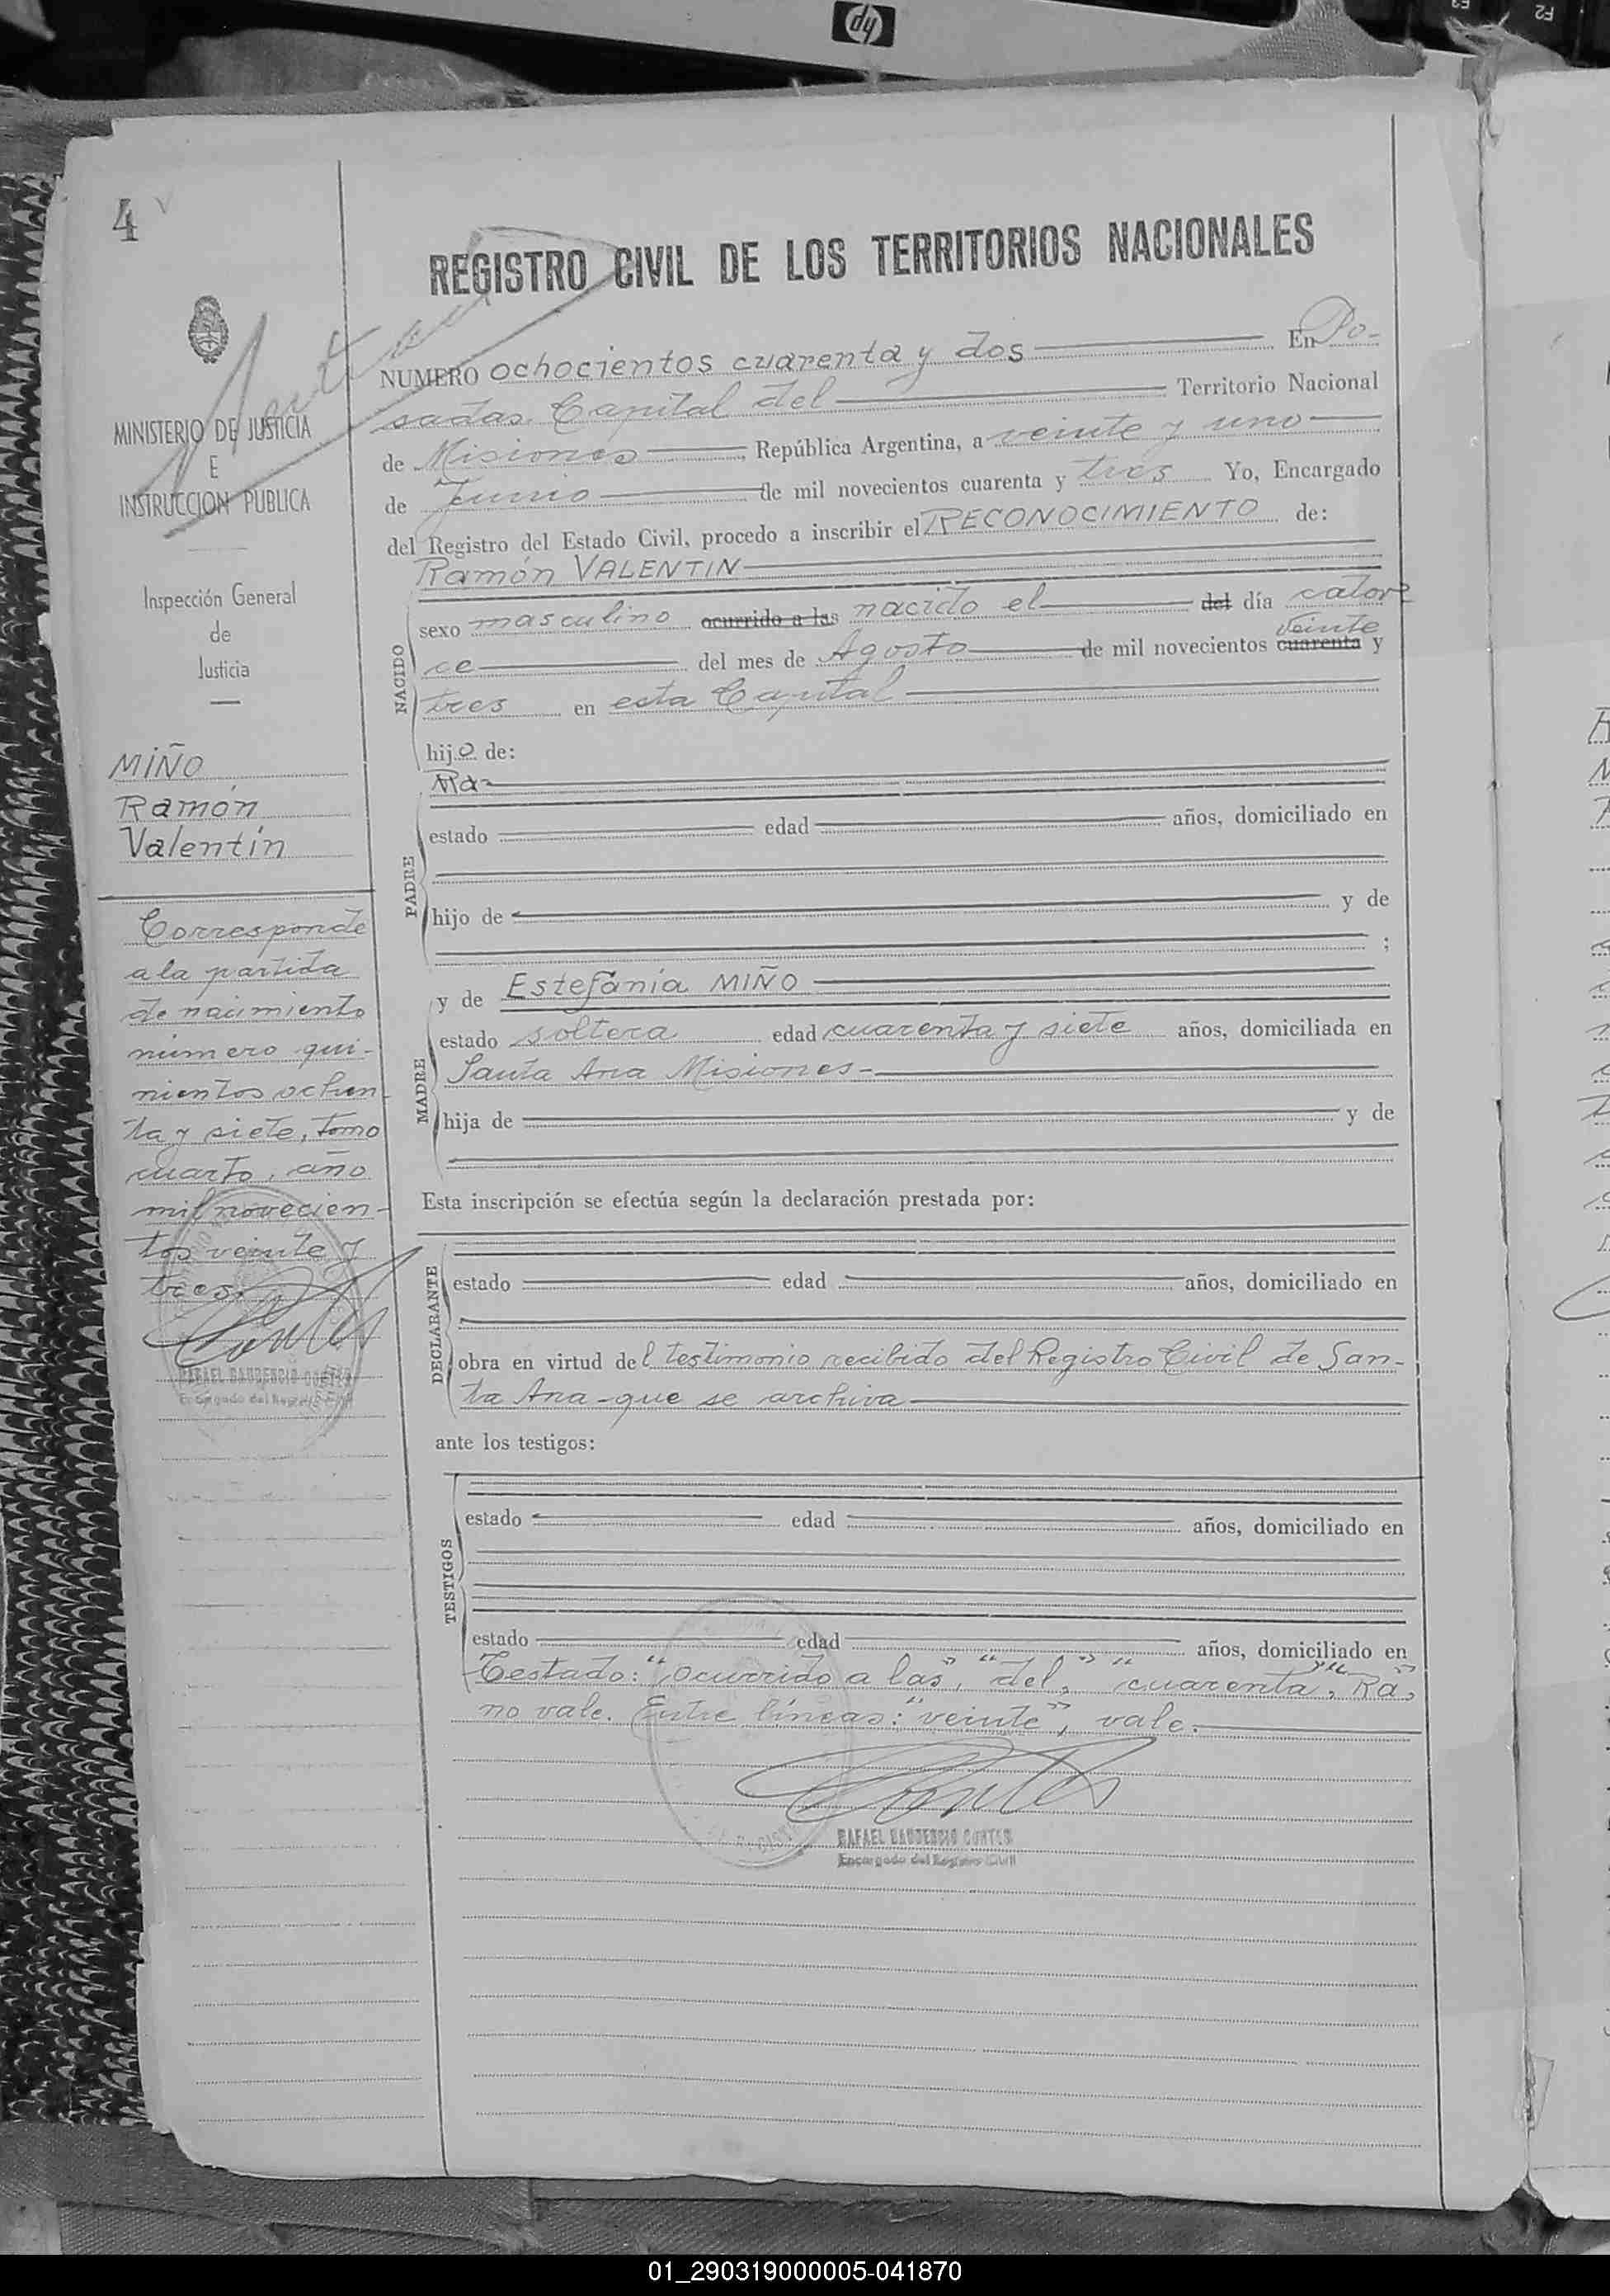 hp
F3
F2
4
REGISTRO CIVIL DE LOS TERRITORIOS NACIONALES
MINISTERIO DE JUSTICIA
E
INSTRUCCION PUBLICA
Inspección General
de
Justicia
MIÑO
Ramón
Valentín
Corresponde
a la partida
de nacimiento
número qui-
nientos ochen-
ta y siete, tomo
cuarto, año
mil novecien-
tos veinte y
tres.
RAFAEL GAUDENCIO CORTES
Encargado del Registro Civil
NUMERO ochocientos cuarenta y dos En Po-
sadas Capital del Territorio Nacional
de Misiones República Argentina, a veinte y uno
de Junio de mil novecientos cuarenta y tres Yo, Encargado
del Registro del Estado Civil, procedo a inscribir el RECONOCIMIENTO de:
Ramón VALENTIN
NACIDO
sexo masculino ocurrido a las nacido el del día cator
veinte
ce del mes de Agosto de mil novecientos cuarenta y
tres en esta Capital
hijo de:
PADRE
Ra-
estado edad años, domiciliado en
hijo de y de
;
MADRE
y de Estefanía MIÑO
estado soltera edad cuarenta y siete años, domiciliada en
Santa Ana Misiones-
hija de y de
Esta inscripción se efectúa según la declaración prestada por:
DECLARANTE
estado edad años, domiciliado en
obra en virtud del testimonio recibido del Registro Civil de San-
ta Ana-que se archiva
ante los testigos:
TESTIGOS
estado edad años, domiciliado en
estado edad años, domiciliado en
Testado: "ocurrido a las", "del," "cuarenta", "Ra",
no vale. Entre líneas: "veinte", vale.
RAFAEL GAUDENCIO CORTES
Encargado del Registro Civil
01_290319000005-041870